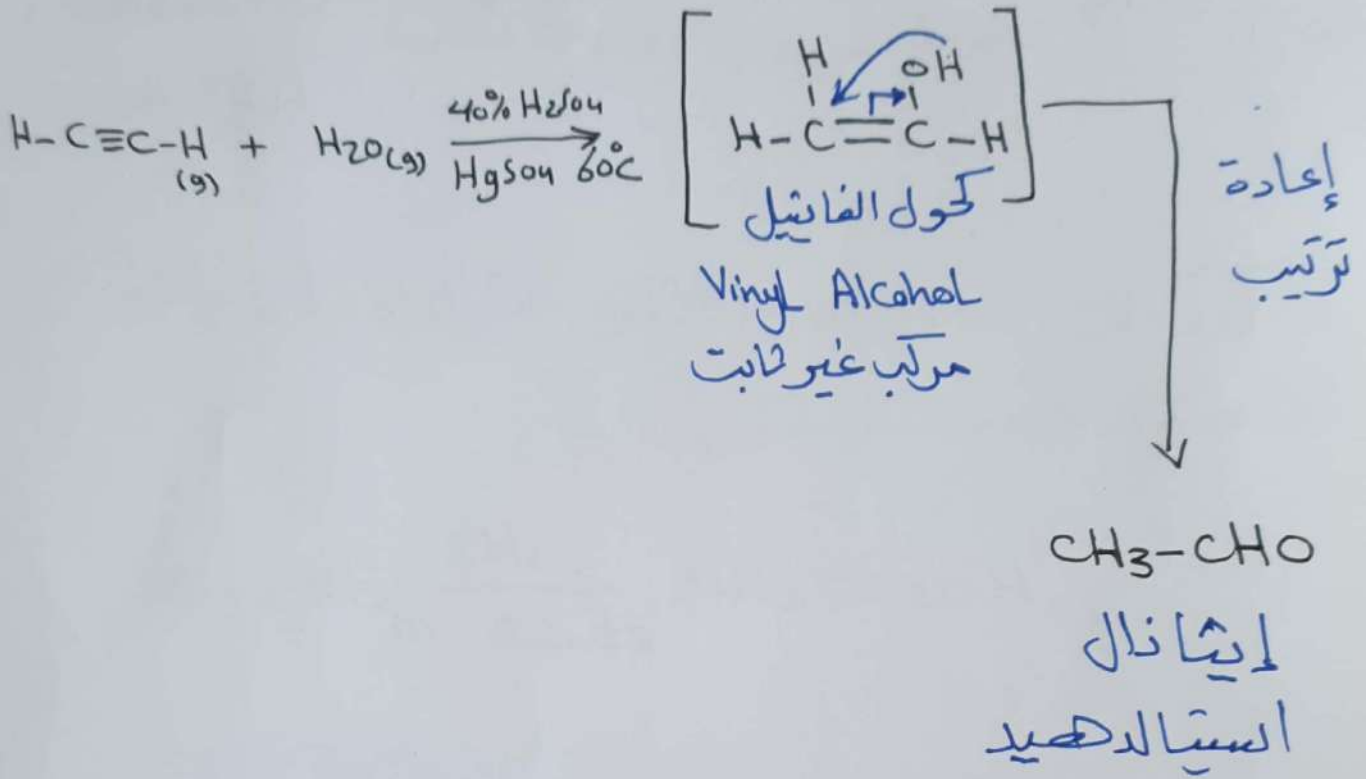 H-C≡C-H (g) + H2O(g)
40% H2SO4
HgSO4 60°C
H OH
H-C=C-H
كحول الفاينيل
Vinyl Alcohol
مركب غير ثابت
إعادة
ترتيب
CH3-CHO
إيثانال
اسيتالدهيد